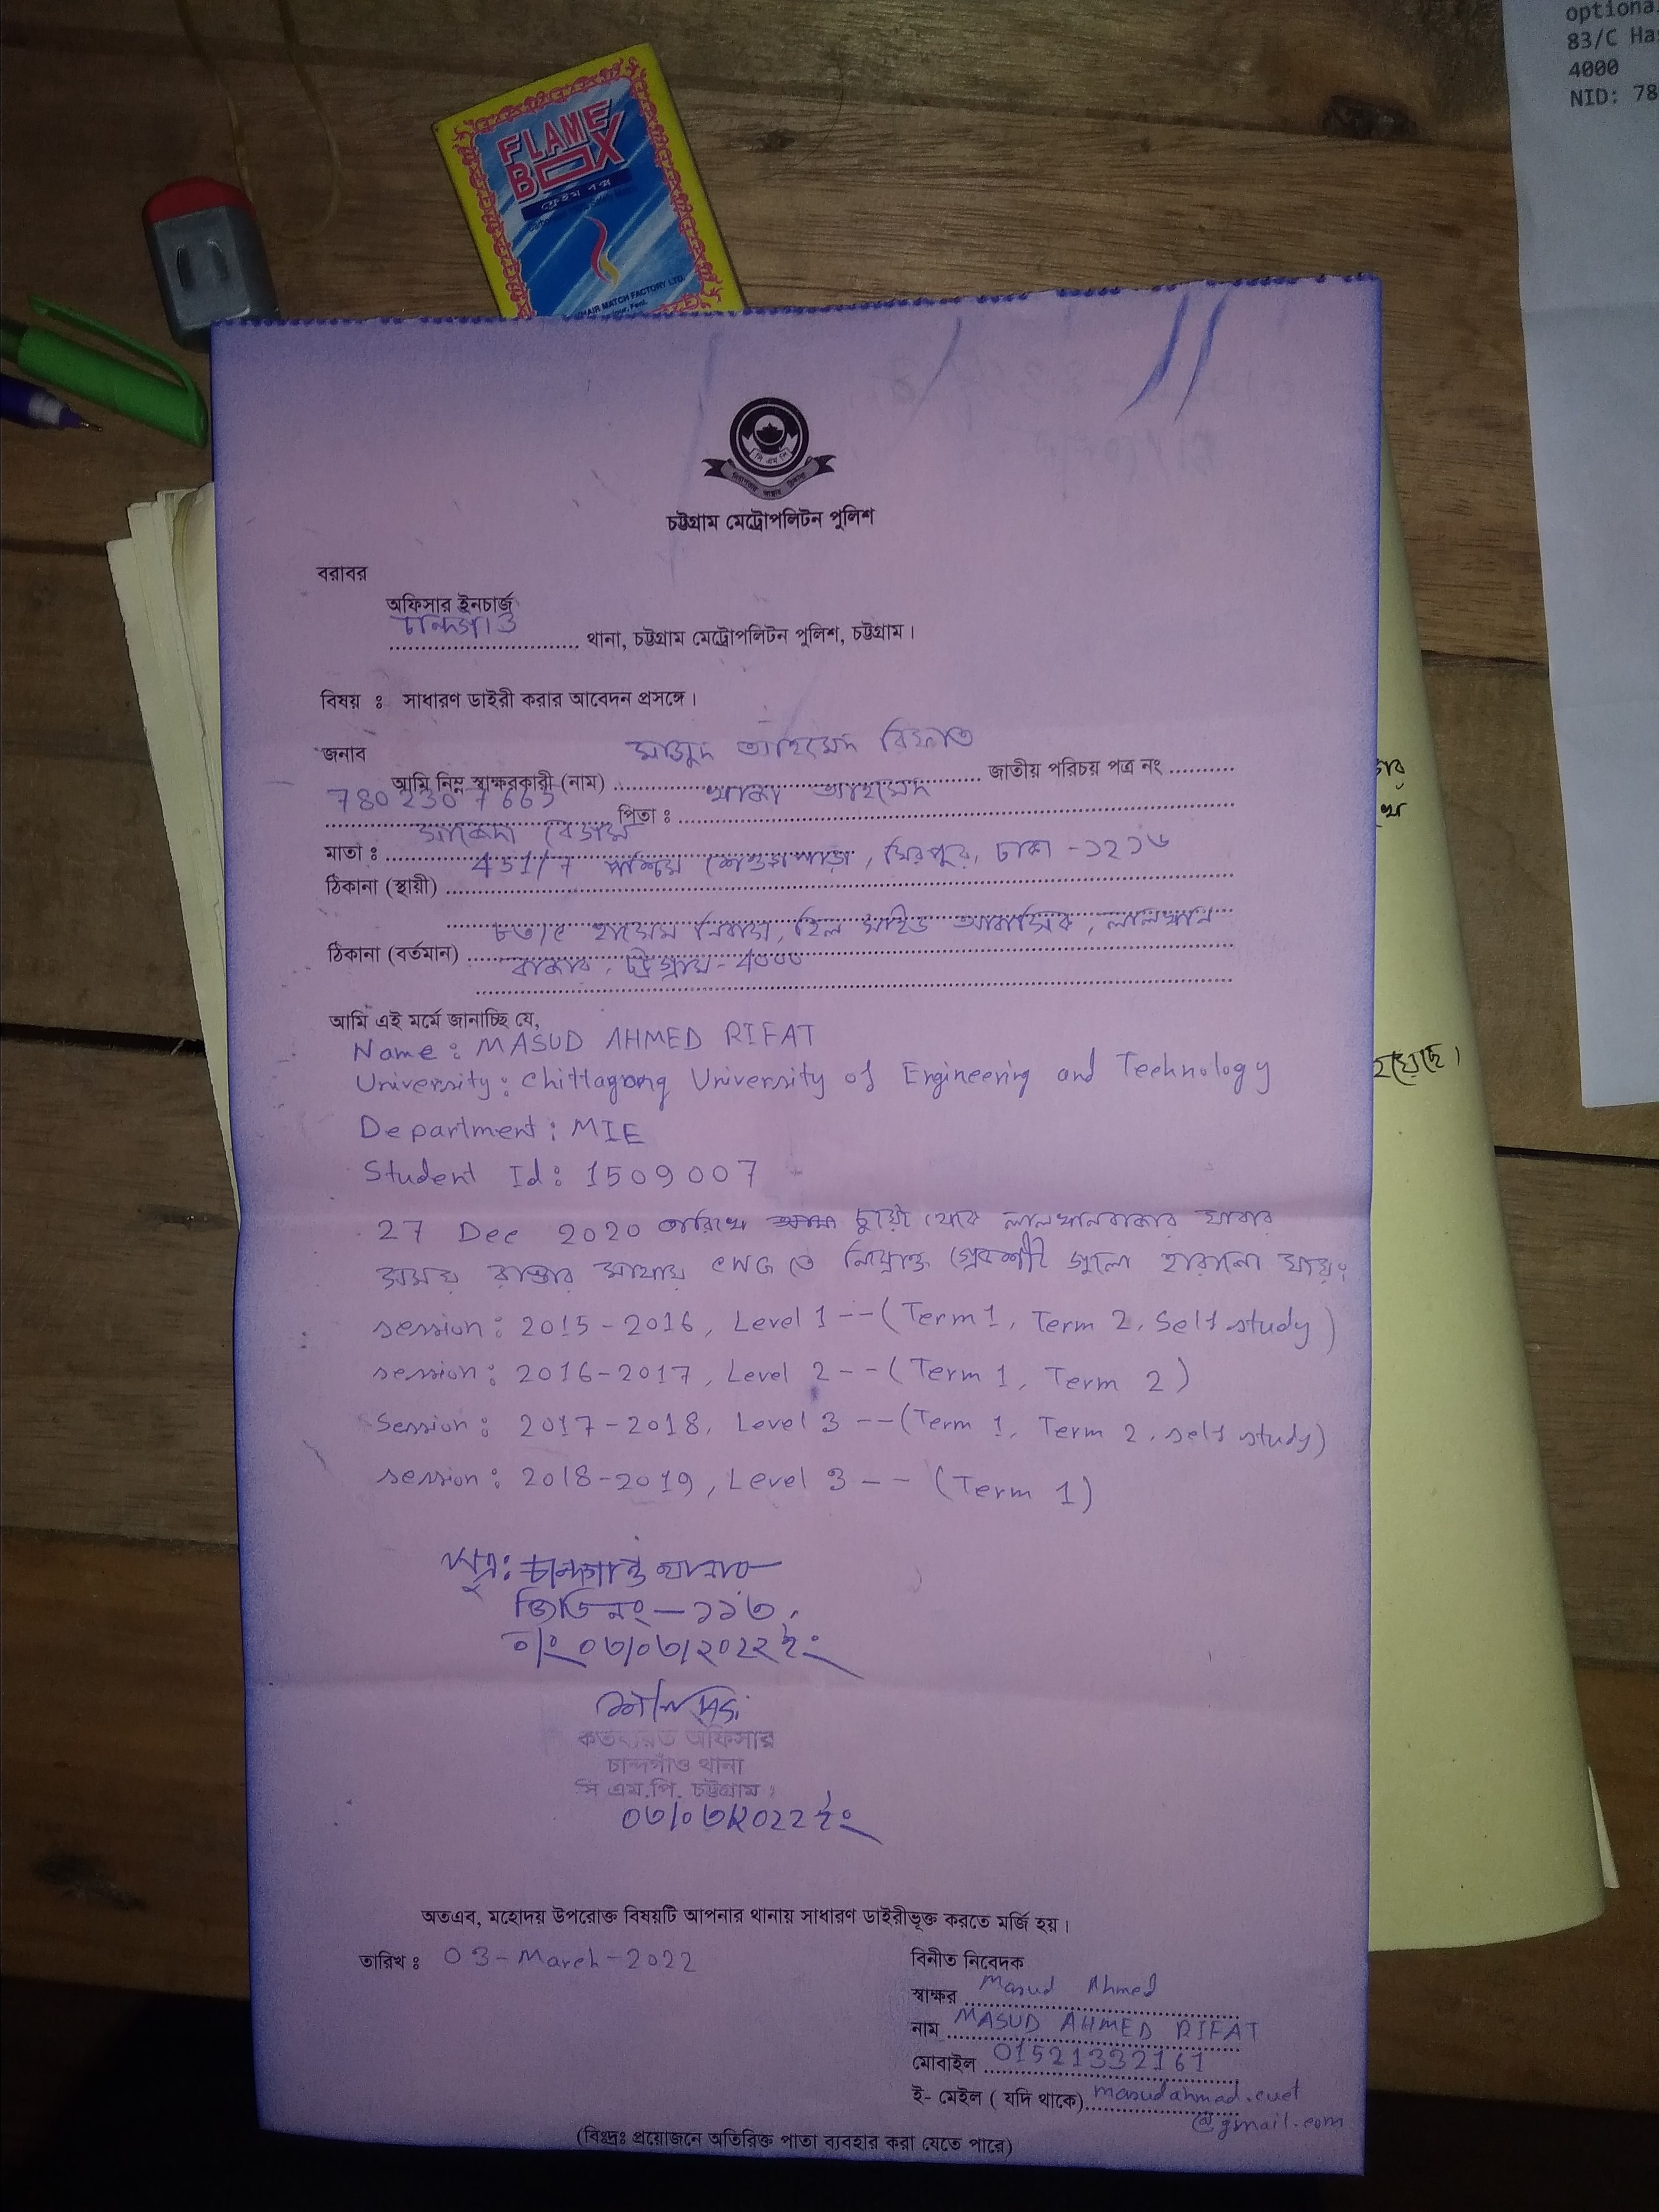 optional
83/C Has
4000
NID: 78
FLAME
BOX
ফ্লেইম বক্স
HAIR MATCH FACTORY LTD.
সি এম পি
চট্টগ্রাম মেট্রোপলিটন পুলিশ
বরাবর
অফিসার ইনচার্জ
চান্দগাও
থানা, চট্টগ্রাম মেট্রোপলিটন পুলিশ, চট্টগ্রাম।
বিষয় ঃ সাধারণ ডাইরী করার আবেদন প্রসঙ্গে।
জনাব
আমি নিম্ন স্বাক্ষরকারী (নাম) মাসুদ আহমেদ রিফাত জাতীয় পরিচয় পত্র নং
7802307665 পিতা ঃ খাজা আহমেদ
মাতা ঃ সাজেদা বেগম
ঠিকানা (স্থায়ী) 451/7 পশ্চিম শেওড়াপাড়া, মিরপুর, ঢাকা -১২১৬
ঠিকানা (বর্তমান) ৮৩/c হাসেম নিবাস, হিল সাইড আবাসিক, লালখান
বাজার, চট্টগ্রাম-4০০০
আমি এই মর্মে জানাচ্ছি যে,
Name : MASUD AHMED RIFAT
University: Chittagong University of Engineering and Technology
Department: MIE
Student Id: 1509007
27 Dec 2020 তারিখে চুয়েট থেকে লালখানবাজার যাবার
সময় রাস্তার মাথায় CNG তে নিম্নোক্ত গ্রেডশীট গুলো হারানো যায়ঃ
session: 2015-2016, Level 1 --(Term 1, Term 2, Self study)
session: 2016-2017, Level 2 --(Term 1, Term 2)
Session: 2017-2018, Level 3 --(Term 1, Term 2, self study)
session: 2018-2019, Level 3 -- (Term 1)
সূত্র: চান্দগাও থানার
জিডি নং-১১৩,
তাং ০৩/০৩/২০২২ ইং
কর্তব্যরত অফিসার
চান্দগাঁও থানা
সি এম.পি. চট্টগ্রাম
০৩/০৩/২০২২ ইং
অতএব, মহোদয় উপরোক্ত বিষয়টি আপনার থানায় সাধারণ ডাইরীভূক্ত করতে মর্জি হয়।
তারিখ ঃ 03-March-2022
বিনীত নিবেদক
স্বাক্ষর Masud Ahmed
নাম MASUD AHMED RIFAT
মোবাইল 01521332161
ই- মেইল ( যদি থাকে) masudahmad.cuet
@gmail.com
(বিঃদ্রঃ প্রয়োজনে অতিরিক্ত পাতা ব্যবহার করা যেতে পারে)
হয়েছে।